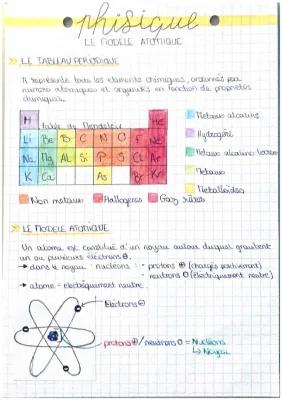 phisique
LE MODELE ATOMIQUE
LE TABLEAU PERIODIQUE
Il représente tous les éléments chimiques, ordonnés par
numéro atomiques et organisés en fonction de propriétés
chimiques.
H He
table de Mendeleïev
Li Be B C N O F Ne
Na Mg AL Si P S CL Ar
K Ca As Br Kr
Métaux alcalins
Hydrogène
Métaux alcalino-terreux
Métaux
Métalloïdes
Non métaux Halogènes Gaz rares
LE MODELE ATOMIQUE
Un atome est constitué d'un noyau autour duquel gravitent
un ou plusieurs électrons ⊖.
→ dans le noyau : nucléons : - protons ⊕ (chargés positivement)
- neutrons O (électriquement neutre)
→ atome = électriquement neutre.
Électrons ⊖
protons ⊕ / neutrons O = Nucléons
↳ Noyau